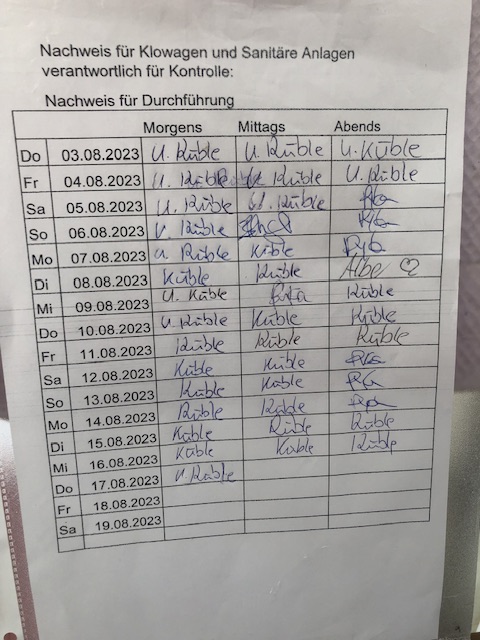 Nachweis für Klowagen und Sanitäre Anlagen
verantwortlich für Kontrolle:
Nachweis für Durchführung
Morgens Mittags Abends
Do 03.08.2023 U. Küble U. Küble U. Küble
Fr 04.08.2023 U. Küble U. Küble U. Küble
Sa 05.08.2023 U. Küble U. Küble
So 06.08.2023 U. Küble
Mo 07.08.2023 U. Küble Küble
Di 08.08.2023 Küble Küble
Mi 09.08.2023 U. Küble Küble
Do 10.08.2023 U. Küble Küble Küble
Fr 11.08.2023 Küble Küble Küble
Sa 12.08.2023 Küble Küble
So 13.08.2023 Küble Küble
Mo 14.08.2023 Küble Küble
Di 15.08.2023 Küble Küble Küble
Mi 16.08.2023 Küble Küble Küble
Do 17.08.2023 U. Küble
Fr 18.08.2023
Sa 19.08.2023